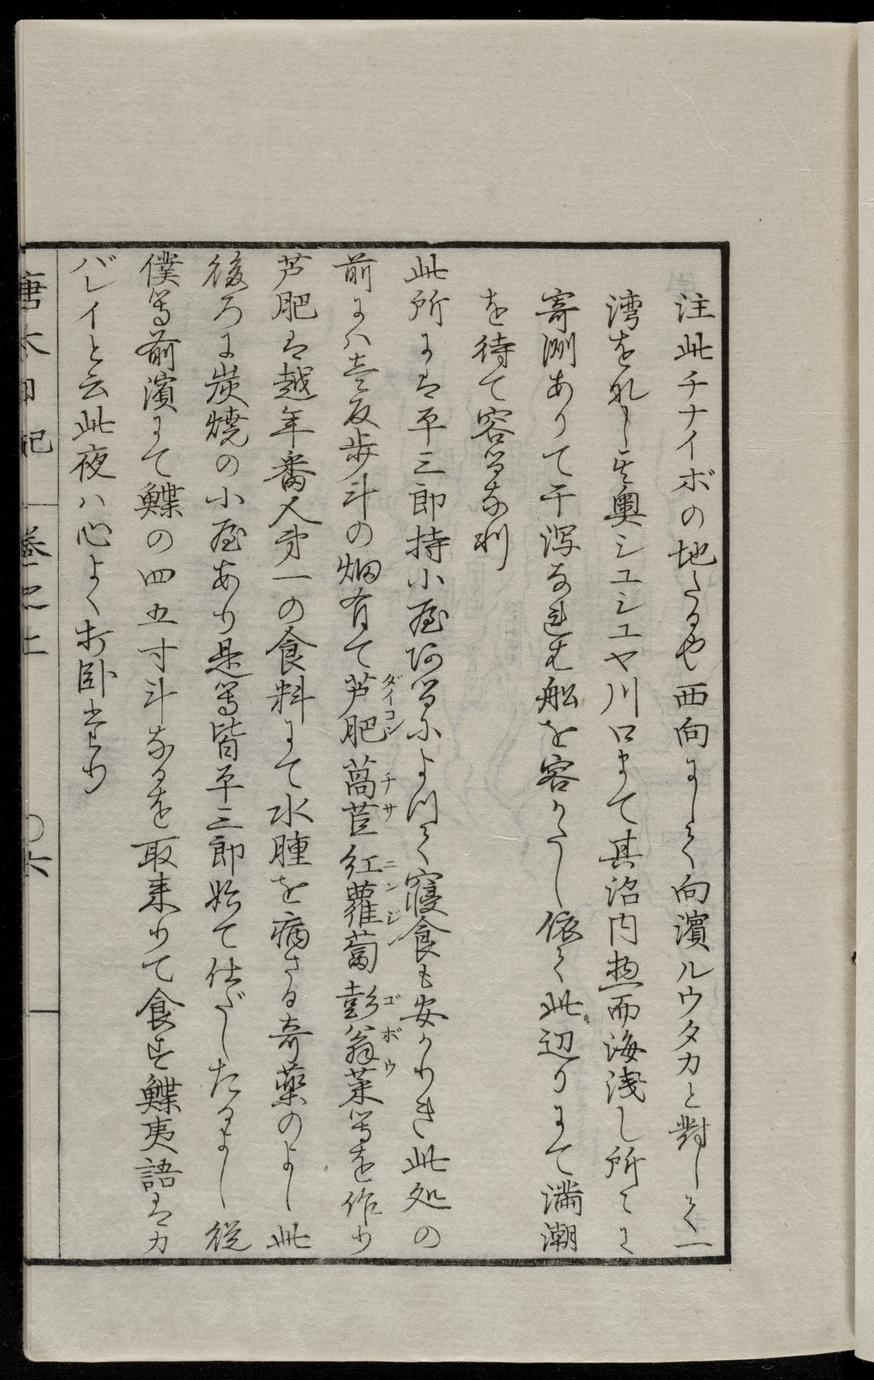 注此チナイボの地たるや西向にして向濱ルウタカと對して一
湾をなし其奥シユシユヤ川口まて其沼内惣而海浅し所々に
寄洲ありて干泻なれは舩を容かたし依て此辺りにて満潮
を待て容るなり
此所には平三郎持小屋有るによつて寝食も安かりき此処の
前には壱反歩斗の畑有て芦肥萵苣紅蘿蔔彭翁菜等を作り
ダイコン チサ ニンジン ゴボウ
芦肥は越年番人第一の食料にて水腫を病さる奇薬のよし此
後ろに炭焼の小屋あり是等皆平三郎始て仕だしたるよし従
僕等前濱にて鰈の四五寸斗なるを取来りて食す鰈夷語はカ
バレイと云此夜は心よく打臥たり
唐太日記 巻之上 〇六